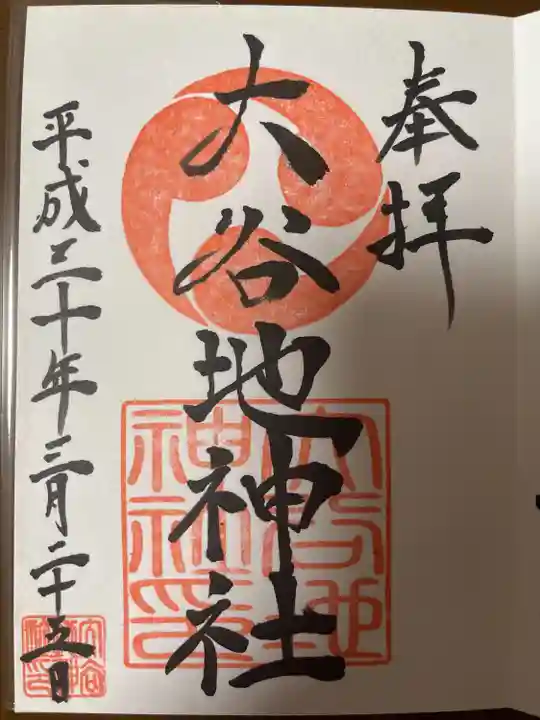 奉拝
大谷地神社
平成三十年三月二十五日
大谷地
神社印